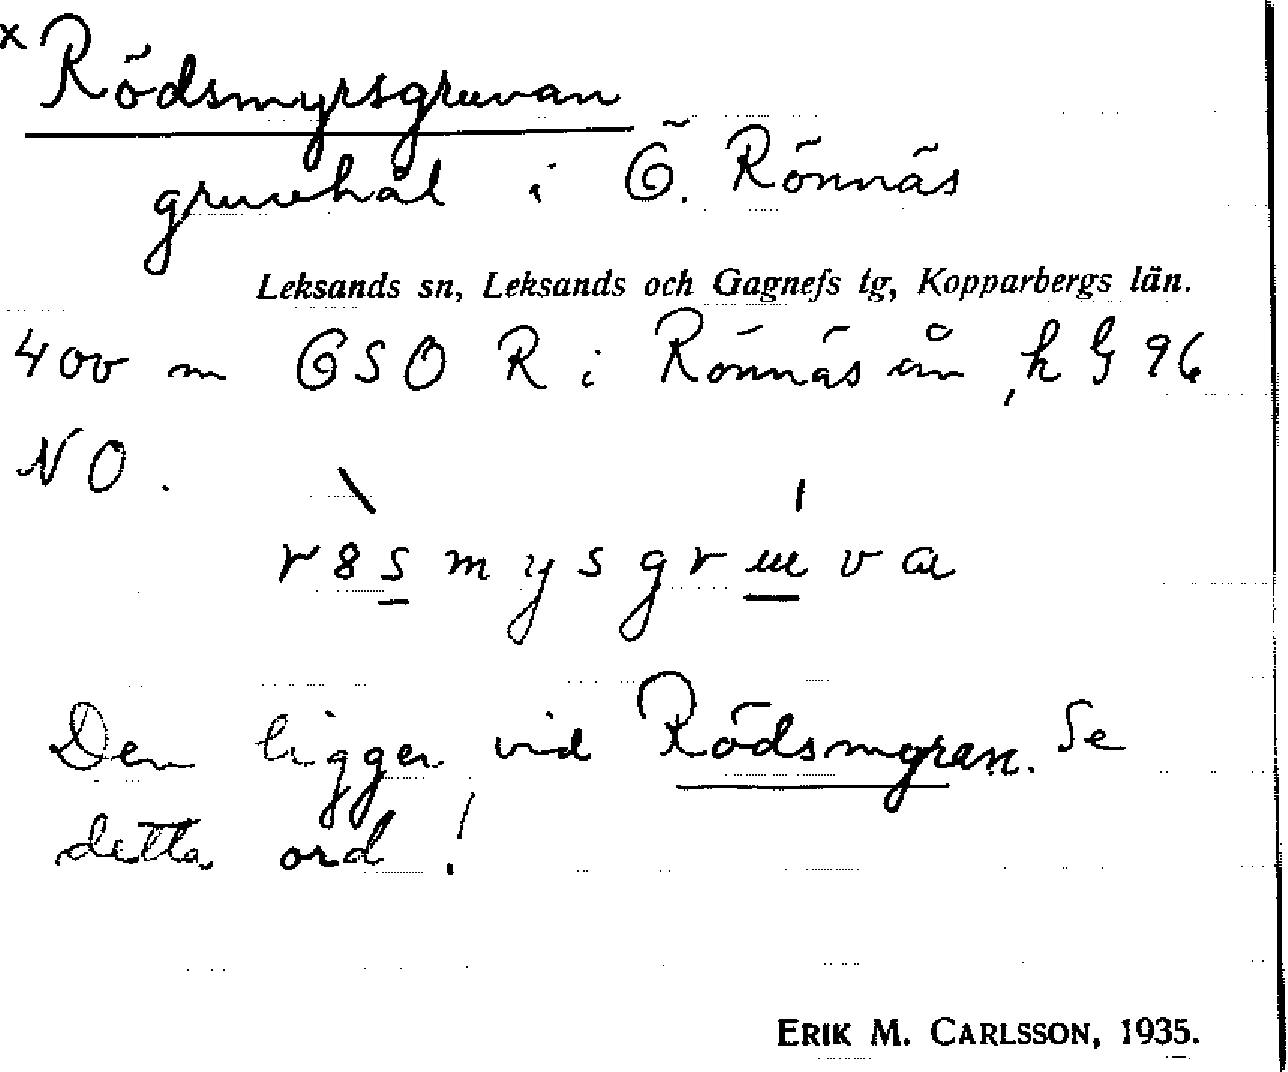 x Rödsmyrsgruvan
gruvhål i Ö. Rönnäs
Leksands sn, Leksands och Gagnefs tg, Kopparbergs län.
400 m OSO R i Rönnäs ån, k G 96
NO.
r8smysgruva
Den ligger vid Rödsmyren. Se
detta ord!
ERIK M. CARLSSON, 1935.